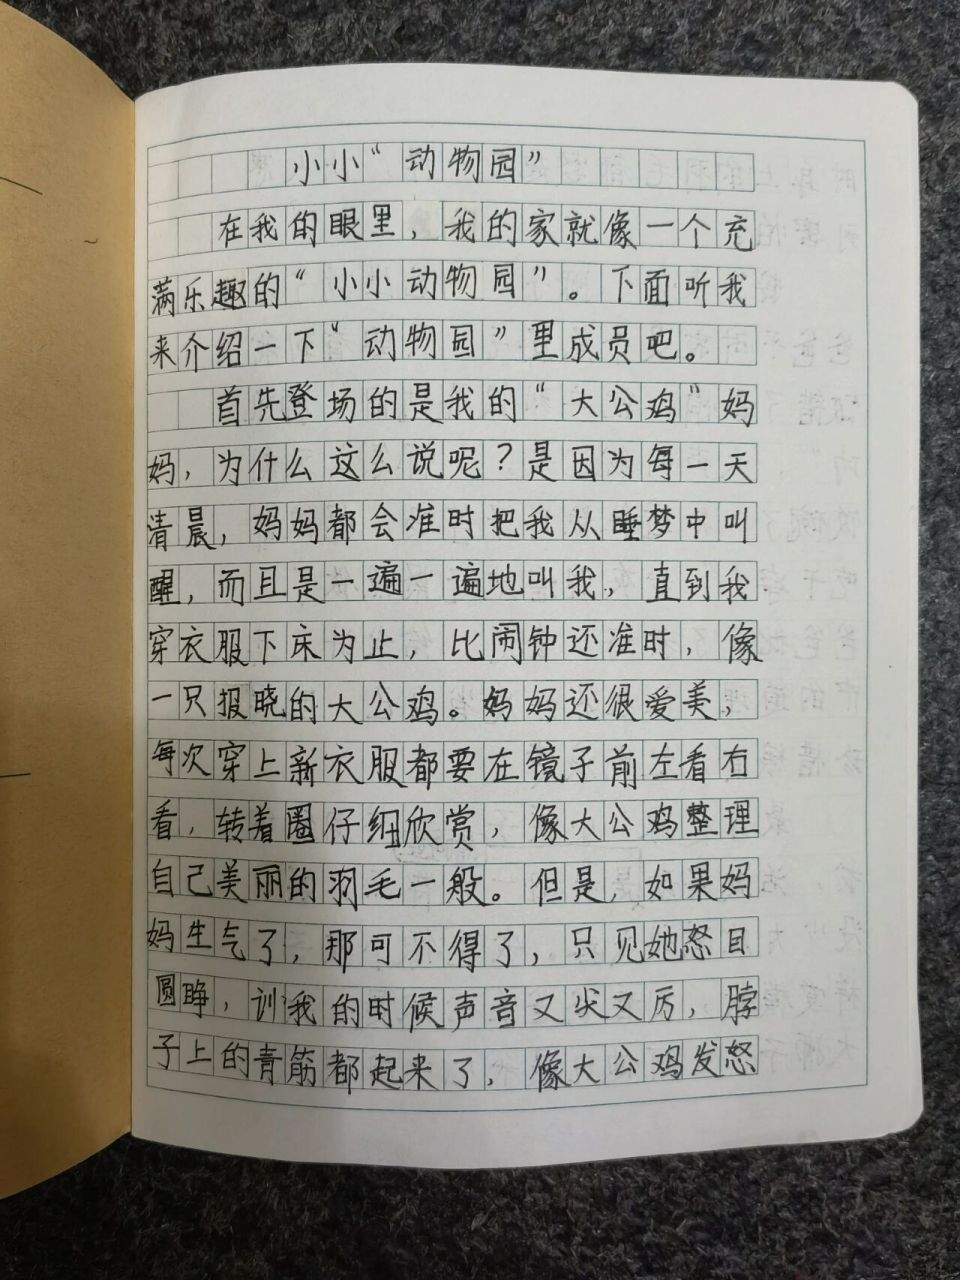 小小“动物园”
在我的眼里，我的家就像一个充
满乐趣的“小小动物园”。下面听我
来介绍一下“动物园”里成员吧。
首先登场的是我的“大公鸡”妈
妈，为什么这么说呢？是因为每一天
清晨，妈妈都会准时把我从睡梦中叫
醒，而且是一遍一遍地叫我，直到我
穿衣服下床为止，比闹钟还准时，像
一只报晓的大公鸡。妈妈还很爱美，
每次穿上新衣服都要在镜子前左看右
看，转着圈仔细欣赏，像大公鸡整理
自己美丽的羽毛一般。但是，如果妈
妈生气了，那可不得了，只见她怒目
圆睁，训我的时候声音又尖又厉，脖
子上的青筋都起来了，像大公鸡发怒